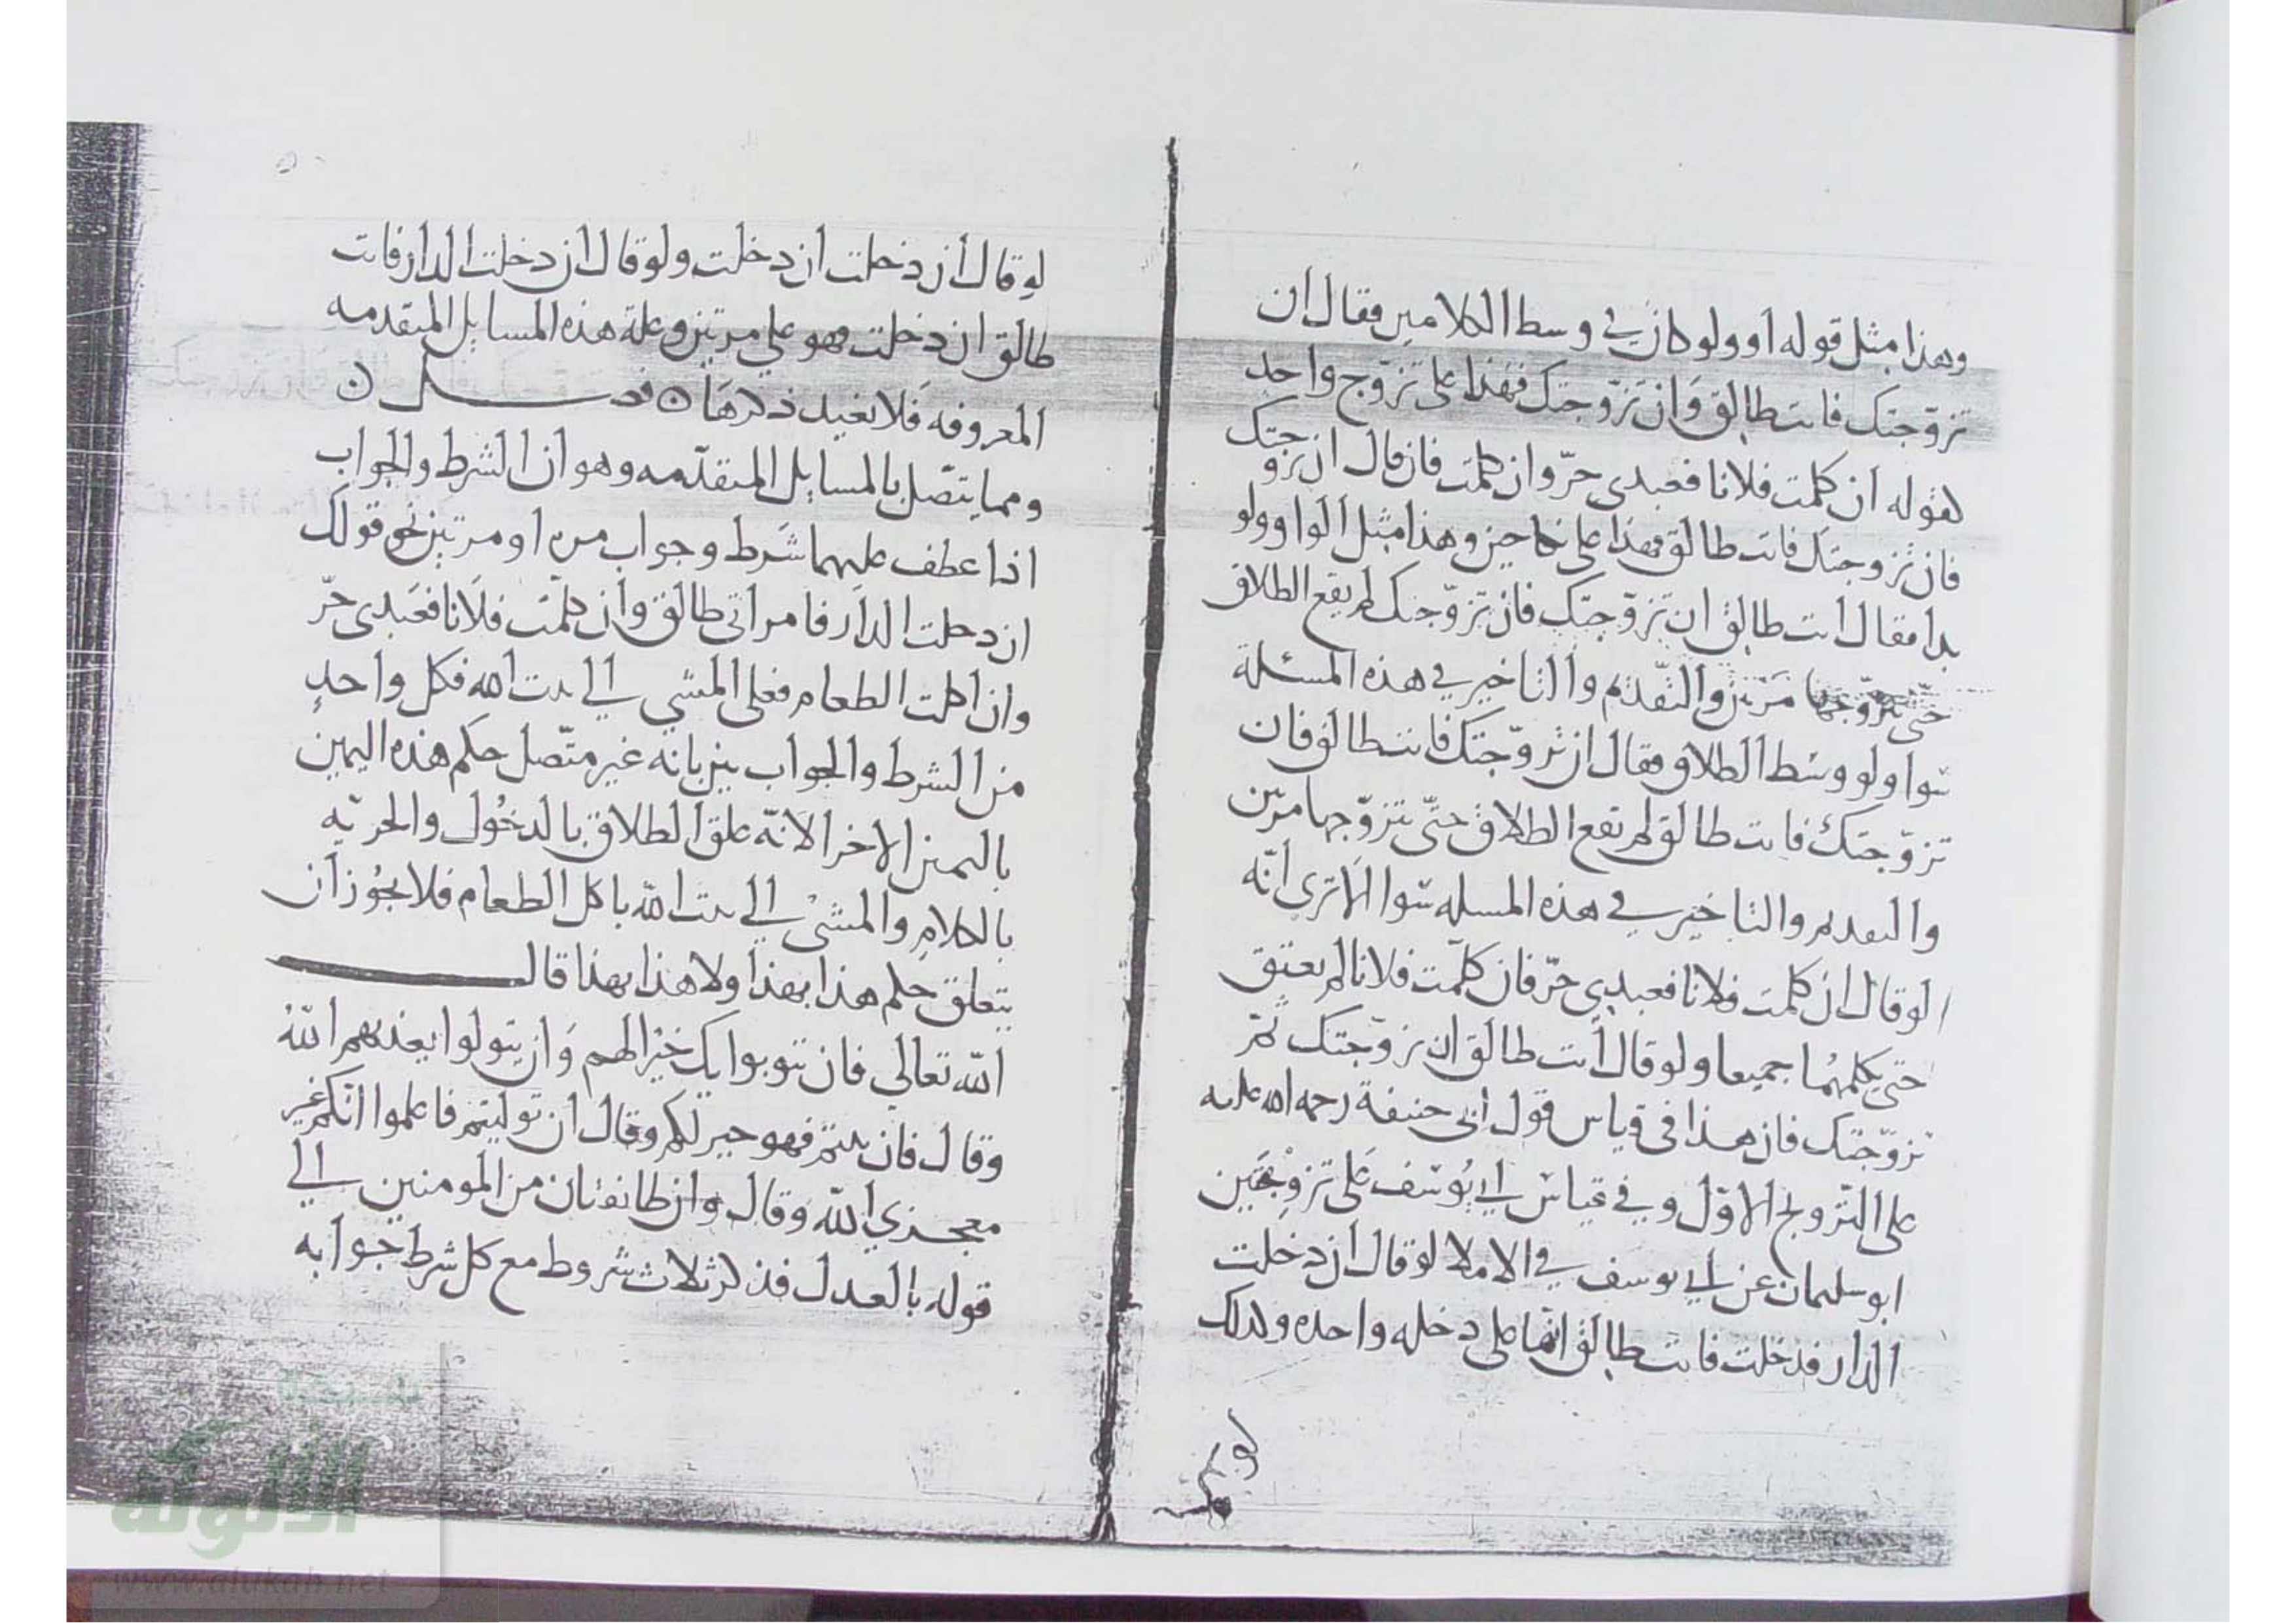 وهذا مثل قوله أو ولو كان في وسط الكلامين فقال ان
تزوّجتك فانت طالق وَان تزوّجتك فهذا على تزوّج واحد
كقوله ان كلمت فلانا فعبدى حرّ وان كلمت فان قال ان تزوجتك
فان تزوجتك فانت طالق فهذا على نكاحين وهذا مثل الواو ولو
بدا فقال انت طالق ان تزوّجتك فان تزوّجتك لم يقع الطلاق
حتّى يتزوّجها مرّتين والتقدّم والتاخير في هذه المسئلة
سوا ولو وسط الطلاق فقال ان تزوّجتك فانت طالق فان
تزوّجتك فانت طالق لم يقع الطلاق حتّى يتزوّجها مرّتين
والتقديم والتاخير في هذه المسله سوا الا ترى انّه
لو قال ان كلمت فلانا فعبدي حرّ فان كلّمت فلانا لم يعتق
حتى يكلمهُما جميعا ولو قال أنت طالق ان تزوّجتك ثمّ
تزوّجتك فان هذا في قياس قول ابى حنيفة رحمه الله عليه
على التّزويج الاوّل وفي قياس ابي يُوسف عَلى تزوجين
ابو سليمان عن ابي يوسف في الاملا لو قال ان دخلت
الدار فدخلت فانت طالق انها على دخله واحده وكذلك
لو قال ان دخلت ان دخلت ولو قال ان دخلت الدار فانت
طالق ان دخلت فهو على مرتين وعلة هذه المسايل المتقدمه
المعروفه فلا نعيد ذكرهَا ن فصـــل ن
ومما يتصّل بالمسايل المتقدّمه وهو ان الشرط والجواب
اذا عطف عليهما شَرط وجواب مره او مرتين نحو قولك
ان دخلت الدار فامراتى طالق وان كلّمت فلَانا فعَبدى حرّ
وان اكلت الطعام فعلى المشي الي بيت الله فكل واحدٍ
من الشرط والجواب يبين بانه غير متّصل حكم هذه اليمين
باليمين الاخرا لانّه علق الطلاق بالدخُول والحريّه
بالكلامِ والمشىْ الي بيت الله باكل الطعام فلا يجُوز ان
يتعلق حكم هذا بهذا ولا هذا بهذا قالـــــ
الله تعالى فان يتوبوا يك خيْرا لهم وَان يتولوا يعذبهم اللهُ
وقال فان تبتم فهو خير لكم وقال ان توليتم فاعلموا انّكم غير
معجزي الله وَقال وان طائفتان من المومنين الي
قوله بالعدل فذكر ثلاث شروط مع كل شرط جوابه
شبكة
الألوكة
www.alukah.net